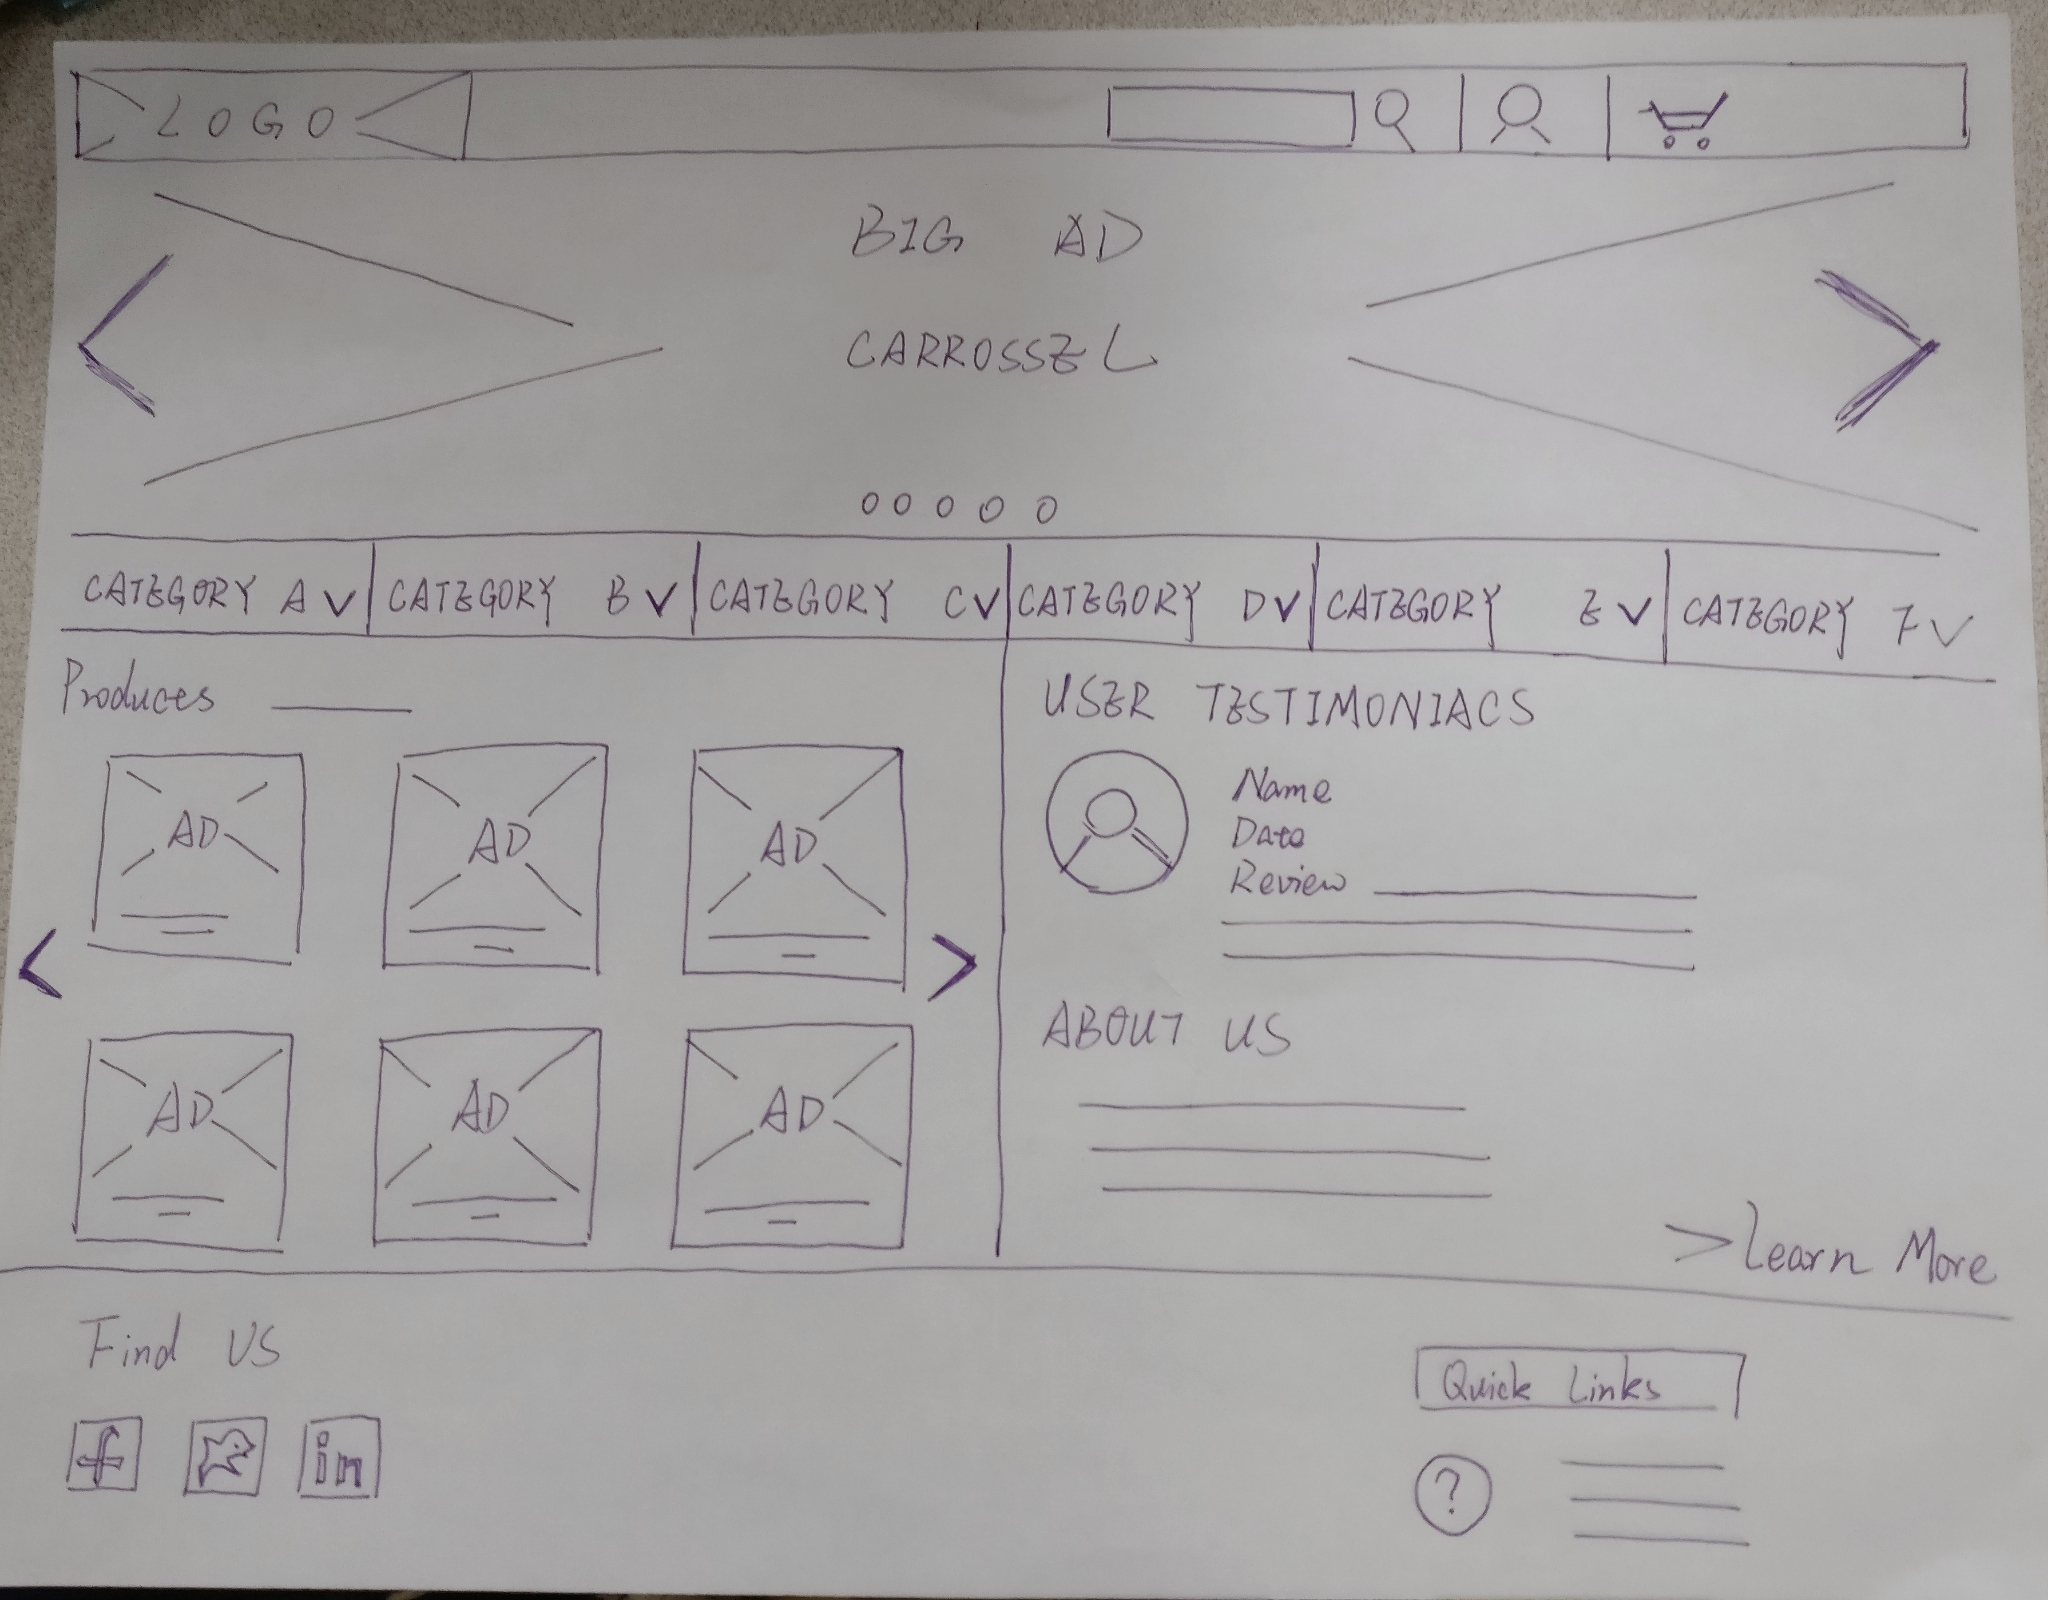 LOGO
BIG AD
CARROSSEL
CATEGORY A
CATEGORY B
CATEGORY C
CATEGORY D
CATEGORY E
CATEGORY F
Produces
AD
AD
AD
AD
AD
AD
USER TESTIMONIALS
Name
Date
Review
ABOUT US
> Learn More
Find US
f
in
Quick Links
?